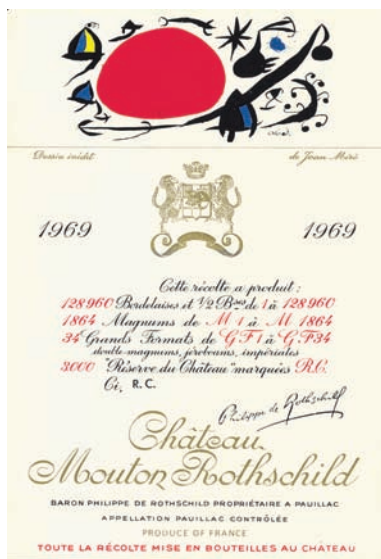 Miró.
Dessin inédit de Joan Miró
1969 1969
Cette récolte a produit :
128960 Bordelaises et 1/2 Bses de 1 à 128960
1864 Magnums de M 1 à M 1864
34 Grands Formats de GF1 à GF34
double-magnums, jéroboams, impériales
3000 "Réserve du Château" marquées R.C.
Ci, R.C.
Philippe de Rothschild
Château
Mouton Rothschild
BARON PHILIPPE DE ROTHSCHILD PROPRIÉTAIRE A PAUILLAC
APPELLATION PAUILLAC CONTRÔLÉE
PRODUCE OF FRANCE
TOUTE LA RÉCOLTE MISE EN BOUTEILLES AU CHÂTEAU